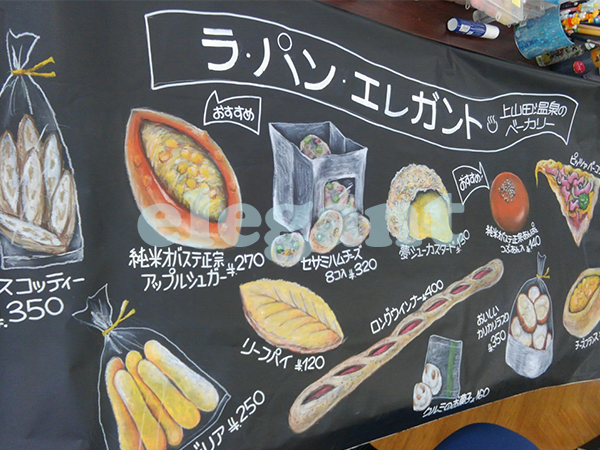 ラ・パン・エレガント
上山田温泉の
ベーカリー
おすすめ
おすすめ
スコッティー
¥350
純米オバステ正宗
アップルシュガー ¥270
セサミハムチーズ
8コ入 ¥320
シューカスタード ¥130
純米オバステ正宗あんぱん
つぶあん入 ¥140
elegant
リーフパイ ¥120
ロングウインナー ¥400
おいしい
カリカリラスク
¥350
クルミのお菓子 ¥160
リア ¥250